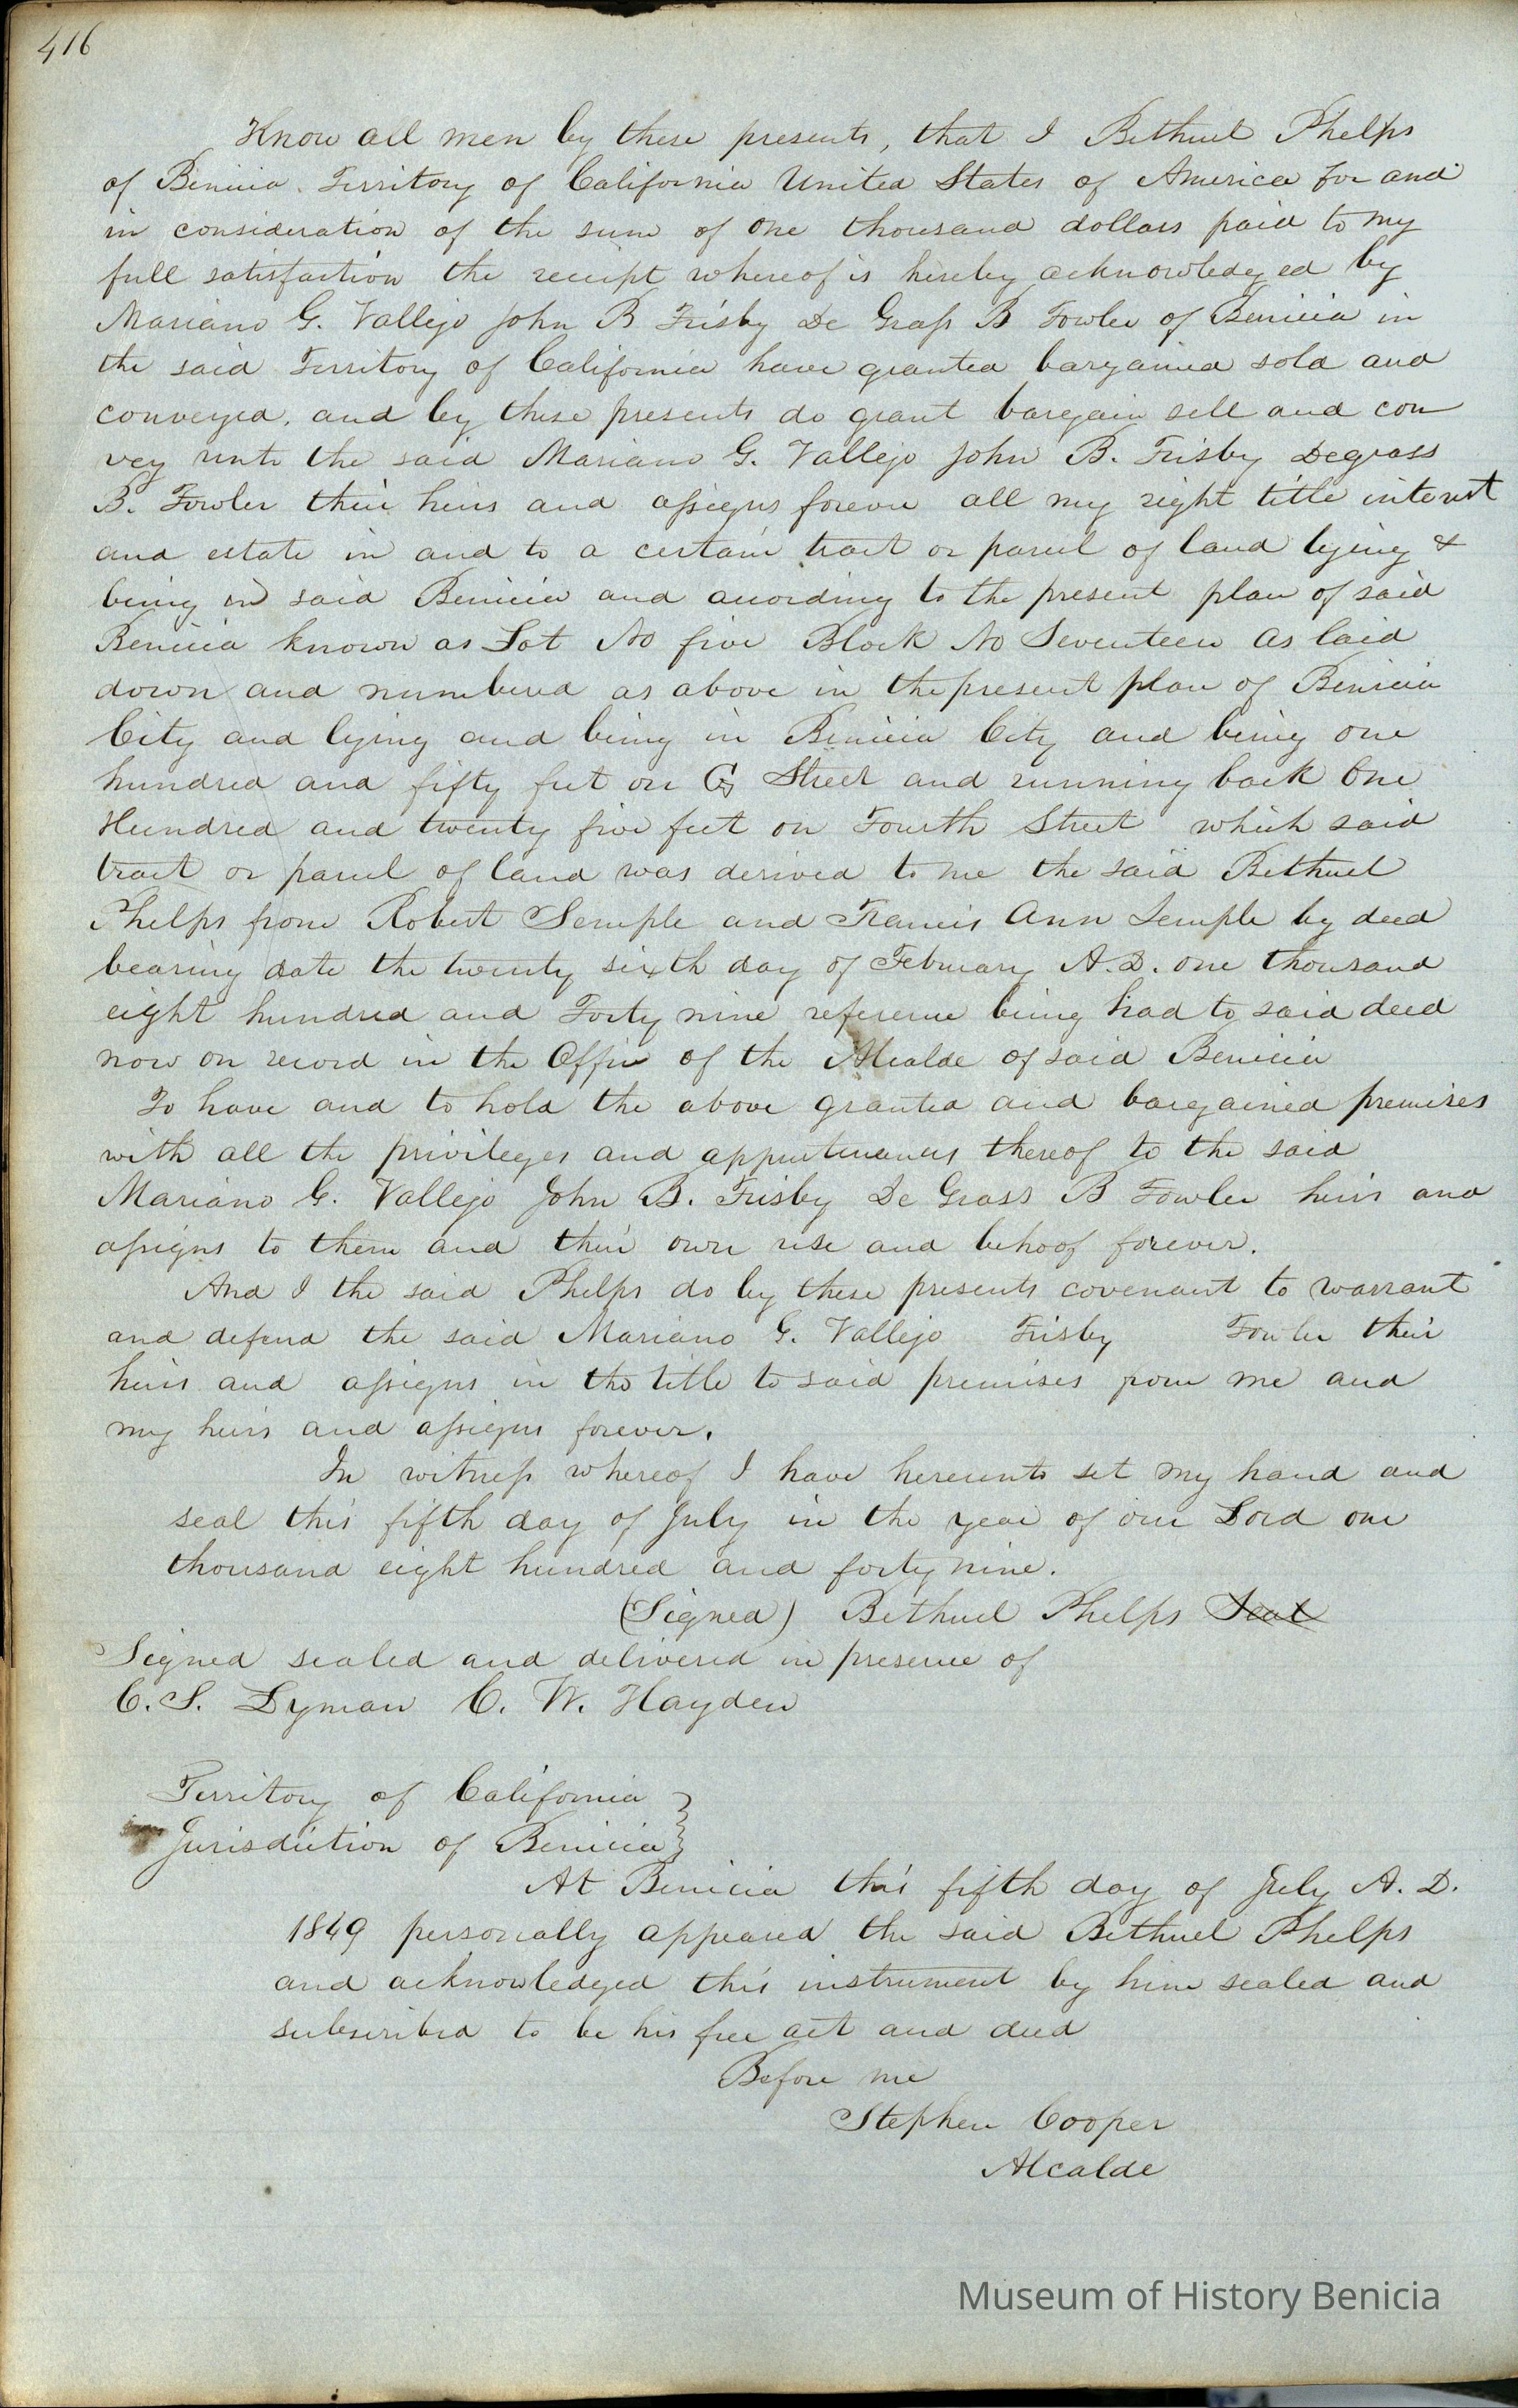 416
Know all men by these presents, that I Bethuel Phelps
of Benicia Territory of California United States of America for and
in consideration of the sum of one thousand dollars paid to my
full satisfaction the receipt whereof is hereby acknowledged by
Mariano G. Vallejo John B Frisby De Grass B Fowler of Benicia in
the said Territory of California have granted bargained sold and
conveyed, and by these presents do grant bargain sell and con
vey unto the said Mariano G. Vallejo John B. Frisby Degrass
B. Fowler their heirs and assigns forever all my right title interest
and estate in and to a certain tract or parcel of land lying &
being in said Benicia and according to the present plan of said
Benicia known as Lot No five Block No Seventeen as laid
down and numbered as above in the present plan of Benicia
City and lying and being in Benicia City and being one
hundred and fifty feet on G Street and running back One
Hundred and twenty five feet on Fourth Street which said
tract or parcel of land was derived to me the said Bethuel
Phelps from Robert Semple and Francis Ann Semple by deed
bearing date the twenty sixth day of February A.D. one thousand
eight hundred and Forty nine reference being had to said deed
now on record in the Office of the Alcalde of said Benicia
To have and to hold the above granted and bargained premises
with all the privileges and appurtenances thereof to the said
Mariano G. Vallejo John B. Frisby De Grass B Fowler heirs and
assigns to them and their own use and behoof forever.
And I the said Phelps do by these presents covenant to warrant
and defend the said Mariano G. Vallejo Frisby Fowler their
heirs and assigns in the title to said premises from me and
my heirs and assigns forever.
In witness whereof I have hereunto set my hand and
seal this fifth day of July in the year of our Lord one
thousand eight hundred and forty nine.
(Signed) Bethuel Phelps Seal
Signed sealed and delivered in presence of
C. S. Lyman C. W. Hayden
Territory of California
Jurisdiction of Benicia
At Benicia this fifth day of July A. D.
1849 personally appeared the said Bethuel Phelps
and acknowledged this instrument by him sealed and
subscribed to be his free act and deed
Before me
Stephen Cooper
Alcalde
Museum of History Benicia